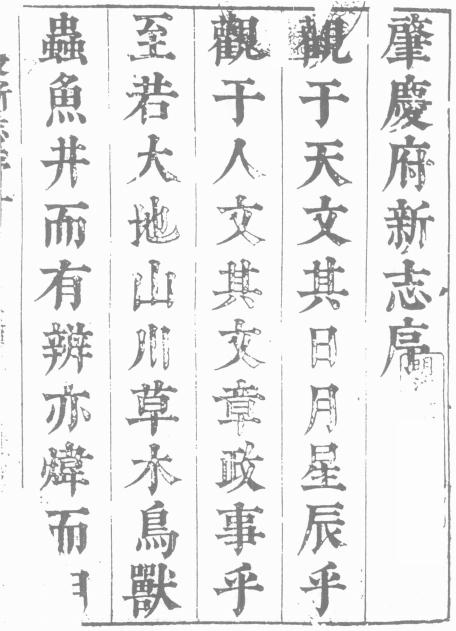 肇慶府新志序
觀于天文其日月星辰乎
觀于人文其文章政事乎
至若大地山川草木鳥獸
蟲魚井而有辨亦煒而